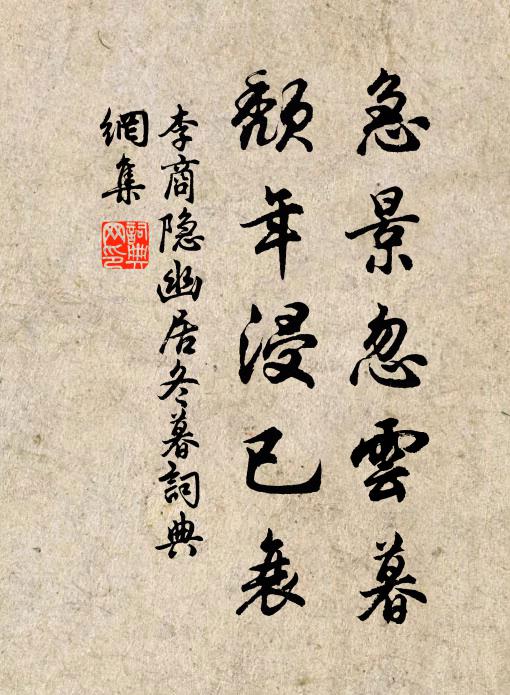 急景忽雲暮
頹年浸已衰
李商隐幽居冬暮詞典
網集
詞典網印